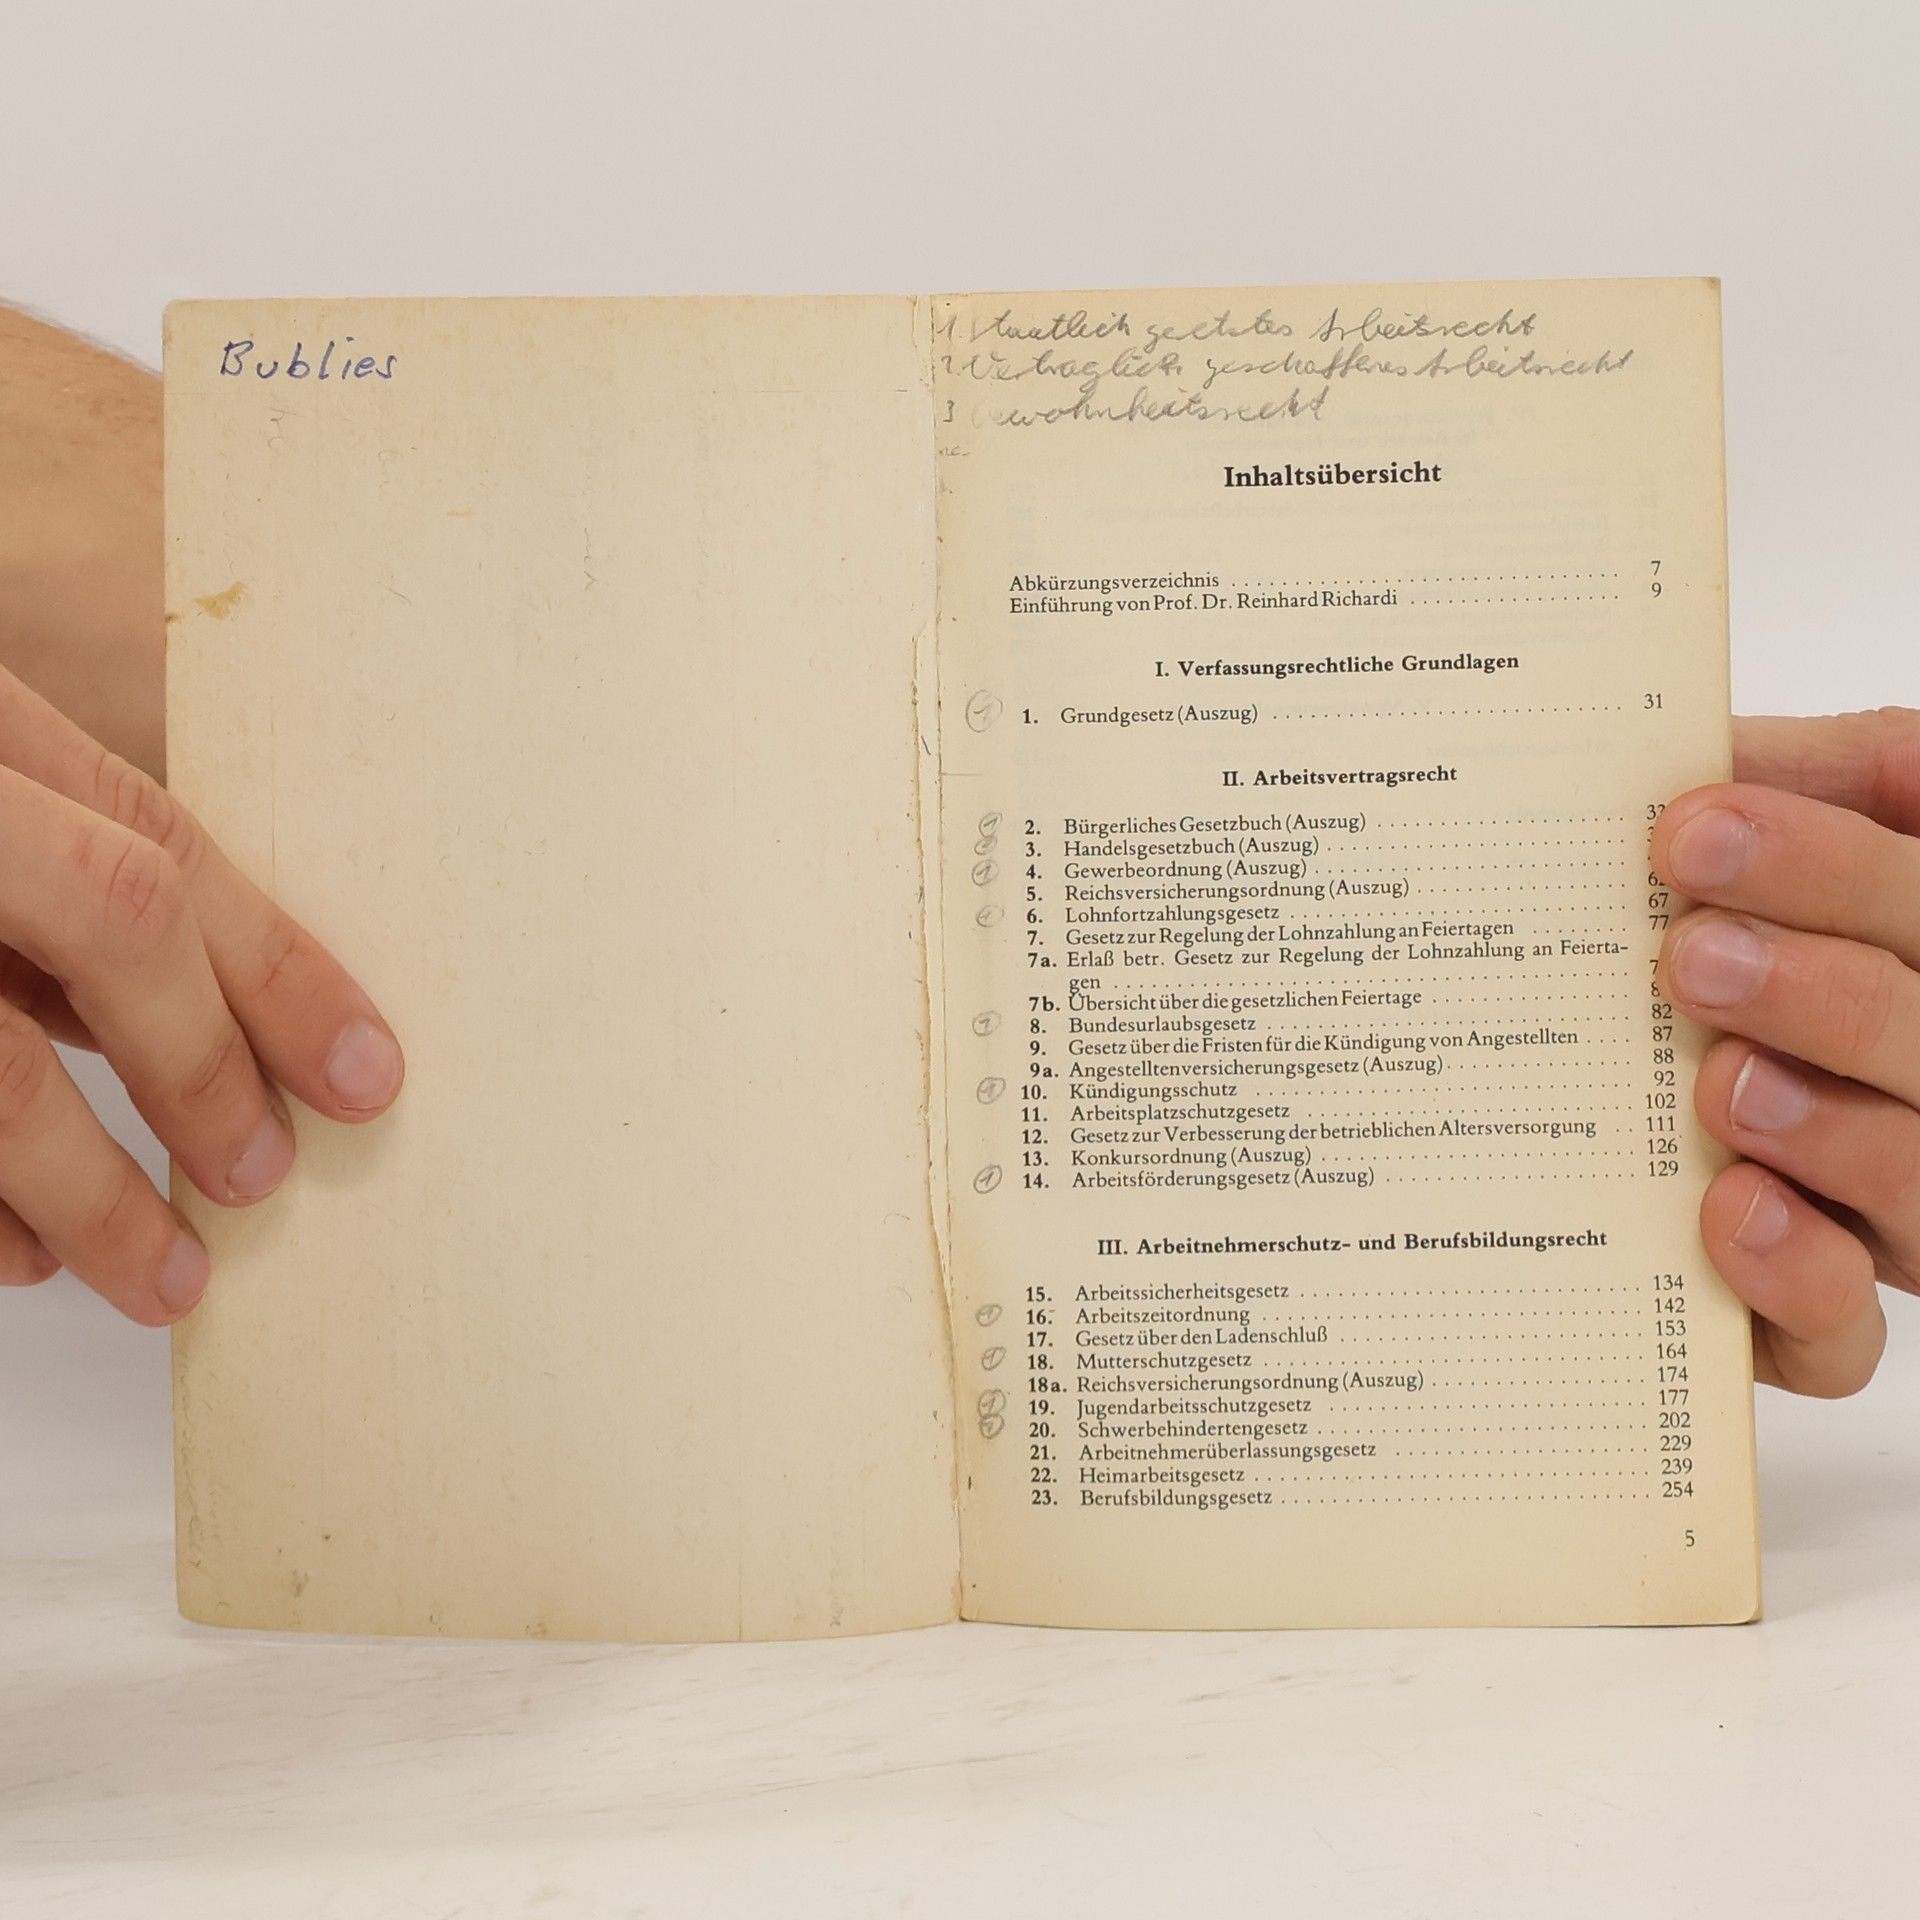 Bublies
1. Staatlich gesetztes Arbeitsrecht
2 Vertraglich geschaffenes Arbeitsrecht
3 Gewohnheitsrecht
Inhaltsübersicht
Abkürzungsverzeichnis . . . . . . . . . . . . . . . . . . . . . . . . . . . . . . . 7
Einführung von Prof. Dr. Reinhard Richardi . . . . . . . . . . . . . . . . . 9
I. Verfassungsrechtliche Grundlagen
1 1. Grundgesetz (Auszug) . . . . . . . . . . . . . . . . . . . . . . . . . . . . 31
II. Arbeitsvertragsrecht
1 2. Bürgerliches Gesetzbuch (Auszug) . . . . . . . . . . . . . . . . . . . .
3. Handelsgesetzbuch (Auszug) . . . . . . . . . . . . . . . . . . . . . . . .
1 4. Gewerbeordnung (Auszug) . . . . . . . . . . . . . . . . . . . . . . . . .
5. Reichsversicherungsordnung (Auszug) . . . . . . . . . . . . . . . . .
1 6. Lohnfortzahlungsgesetz . . . . . . . . . . . . . . . . . . . . . . . . . . . 67
7. Gesetz zur Regelung der Lohnzahlung an Feiertagen . . . . . . . . 77
7a. Erlaß betr. Gesetz zur Regelung der Lohnzahlung an Feierta-
gen . . . . . . . . . . . . . . . . . . . . . . . . . . . . . . . . . . . . . . . . .
7b. Übersicht über die gesetzlichen Feiertage . . . . . . . . . . . . . . . .
1 8. Bundesurlaubsgesetz . . . . . . . . . . . . . . . . . . . . . . . . . . . . . 82
9. Gesetz über die Fristen für die Kündigung von Angestellten . . . . 87
9a. Angestelltenversicherungsgesetz (Auszug) . . . . . . . . . . . . . . . 88
1 10. Kündigungsschutz . . . . . . . . . . . . . . . . . . . . . . . . . . . . . . 92
11. Arbeitsplatzschutzgesetz . . . . . . . . . . . . . . . . . . . . . . . . . . 102
12. Gesetz zur Verbesserung der betrieblichen Altersversorgung . . 111
13. Konkursordnung (Auszug) . . . . . . . . . . . . . . . . . . . . . . . . . 126
1 14. Arbeitsförderungsgesetz (Auszug) . . . . . . . . . . . . . . . . . . . . 129
III. Arbeitnehmerschutz- und Berufsbildungsrecht
15. Arbeitssicherheitsgesetz . . . . . . . . . . . . . . . . . . . . . . . . . . . 134
1 16. Arbeitszeitordnung . . . . . . . . . . . . . . . . . . . . . . . . . . . . . . 142
17. Gesetz über den Ladenschluß . . . . . . . . . . . . . . . . . . . . . . . . 153
1 18. Mutterschutzgesetz . . . . . . . . . . . . . . . . . . . . . . . . . . . . . . 164
18a. Reichsversicherungsordnung (Auszug) . . . . . . . . . . . . . . . . . 174
1 19. Jugendarbeitsschutzgesetz . . . . . . . . . . . . . . . . . . . . . . . . . 177
20. Schwerbehindertengesetz . . . . . . . . . . . . . . . . . . . . . . . . . . 202
21. Arbeitnehmerüberlassungsgesetz . . . . . . . . . . . . . . . . . . . . 229
22. Heimarbeitsgesetz . . . . . . . . . . . . . . . . . . . . . . . . . . . . . . . 239
23. Berufsbildungsgesetz . . . . . . . . . . . . . . . . . . . . . . . . . . . . . 254
5